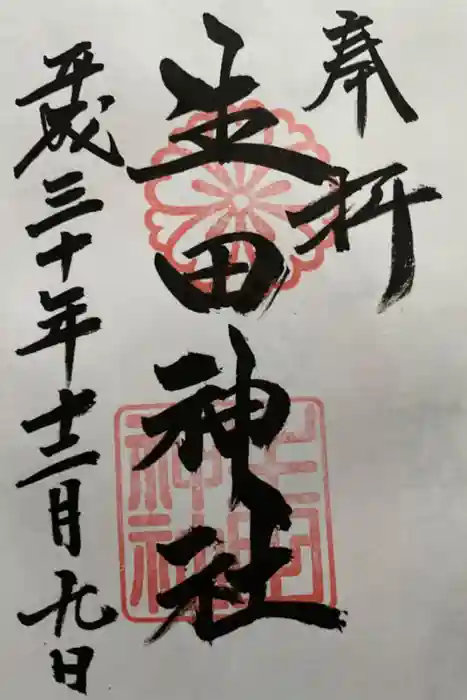 奉拝
生田神社
平成三十年十二月九日
生田
神社